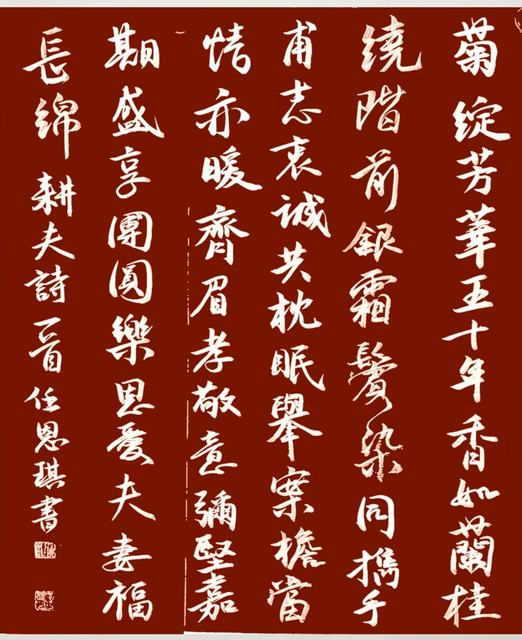 菊綻芳華五十年香如蘭桂
繞階前銀霜鬢染同攜手
甫志衷誠共枕眠舉案擔當
情亦暖齊眉孝敬意彌堅嘉
期盛享團圓樂恩愛夫妻福
長綿 耕夫詩一首 任恩琪書